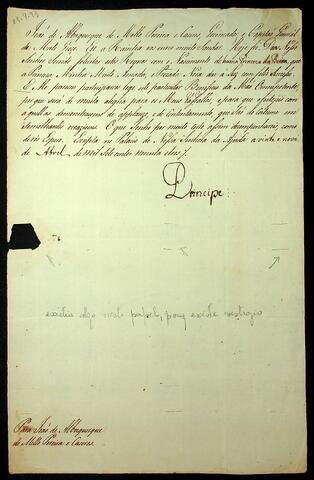 João de Albuquerque de Mello Pereira e Caceres, Governador, e Capitão General
de Mato Grosso. Eu a Rainha vos envio muito Saudar. Hoje foi Deos Nosso
Senhor Servido felicitar estes Reynos com o Nascimento de huma Princeza da Beira, que
a Princeza Minha Muito Amada, e Prezada Nora deo à luz com feliz successo.
E Me pareceo participarvos logo este particular Beneficio da Mão Omnipotente,
por que será de muita alegria para os Meus Vassallos; e para que festejeis com
aquellas demonstraçoens de applauzo, e de contentamento, que são de costume em
semelhantes occazioens. O que Tenho por muito certo assim desempenhareis, como
de vós Espero. Escripta no Palacio de Nossa Senhora da Ajuda a vinte e nove
de Abril de mil sete centos noventa e tres.
Principe.
existia algo neste papel, pois existe vestigio
Para João de Albuquerque
de Mello Pereira e Caceres.